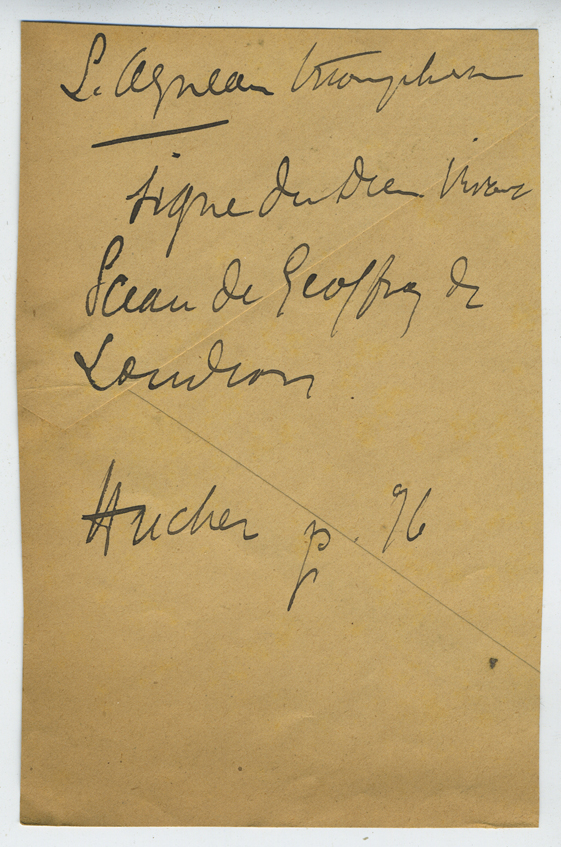 L'Agneau triomphant
signe du Dieu Vivant
Sceau de Geoffroy de
Loudon
Hucher p. 96